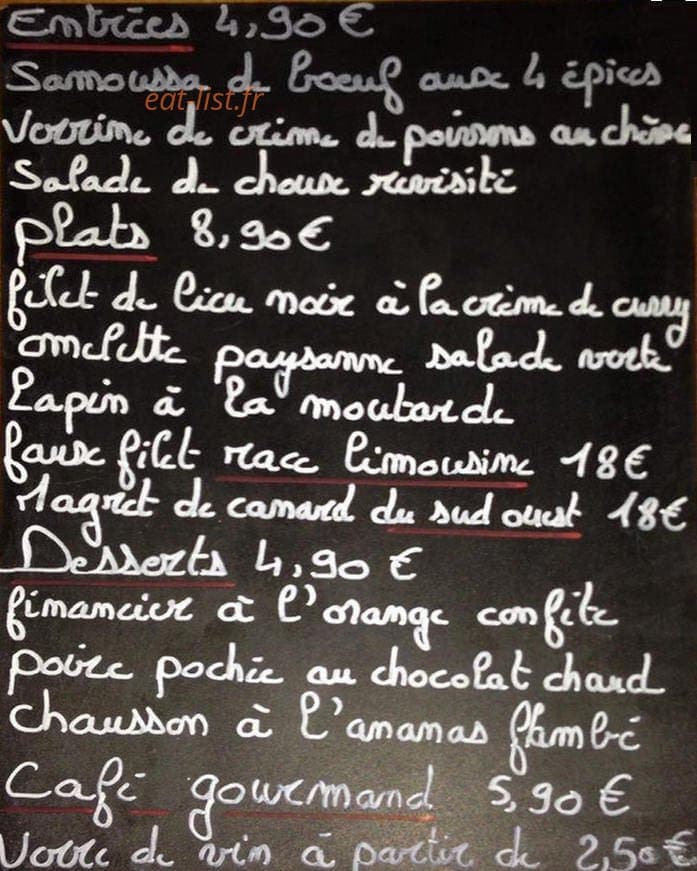 Entrées 4,90 €
Samoussa de boeuf aux 4 épices
eat-list.fr
Verrine de crème de poissons au chèvre
Salade de choux revisité
plats 8,90 €
filet de lieu noir à la crème de curry
omelette paysanne salade verte
Lapin à la moutarde
faux filet race limousine 18 €
Magret de canard du sud ouest 18 €
Desserts 4,90 €
financier à l'orange confite
poire pochée au chocolat chaud
chausson à l'ananas flambé
Café gourmand 5,90 €
Verre de vin à partir de 2,50 €